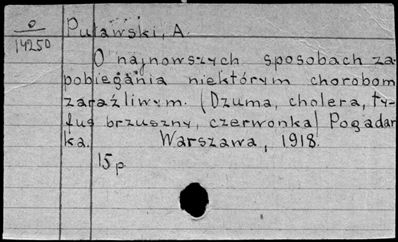 0
14250
Puławski, A.
O najnowszych sposobach za-
pobiegania niektórym chorobom
zaraźliwym. (Dzuma, cholera, ty-
fus brzuszny, czerwonka) Pogadan-
ka. Warszawa, 1918.
15 p